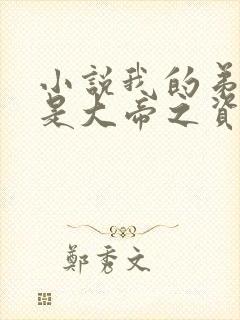 小說我的弟
是大帝之資
鄭秀文